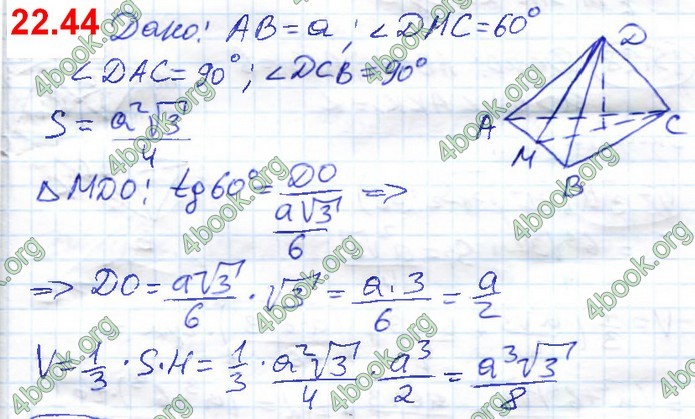 22.44 Дано: AB = a; ∠DMC = 60°
∠DAC = 90°; ∠DCB = 90°
S = a²√3 / 4
△MDO: tg60° = DO / (a√3 / 6) =>
=> DO = a√3 / 6 · √3 = a·3 / 6 = a / 2
V = 1/3 · S·H = 1/3 · a²√3 / 4 · a³ / 2 = a³√3 / 8
D
A
C
M
B
4book.org
4book.org
4book.org
4book.org
4book.org
4book.org
4book.org
4book.org
4book.org
4book.org
4book.org